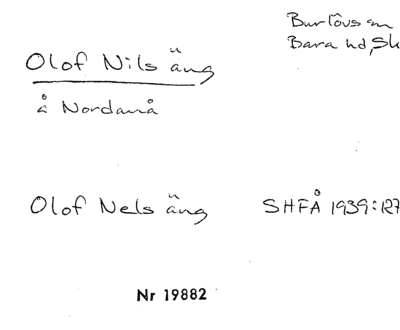 Burlövs sn
Bara hd, Sk
Olof Nils äng
å Nordanå
Olof Nels äng SHFÅ 1939:127
Nr 19882